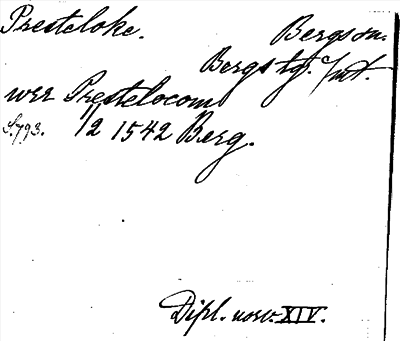 Presteloke. Bergs sn.
Bergs tg. Jmt.
wrr Prestelocom
S. 793. 1/2 1542 Berg.
Dipl. norv. XIV.